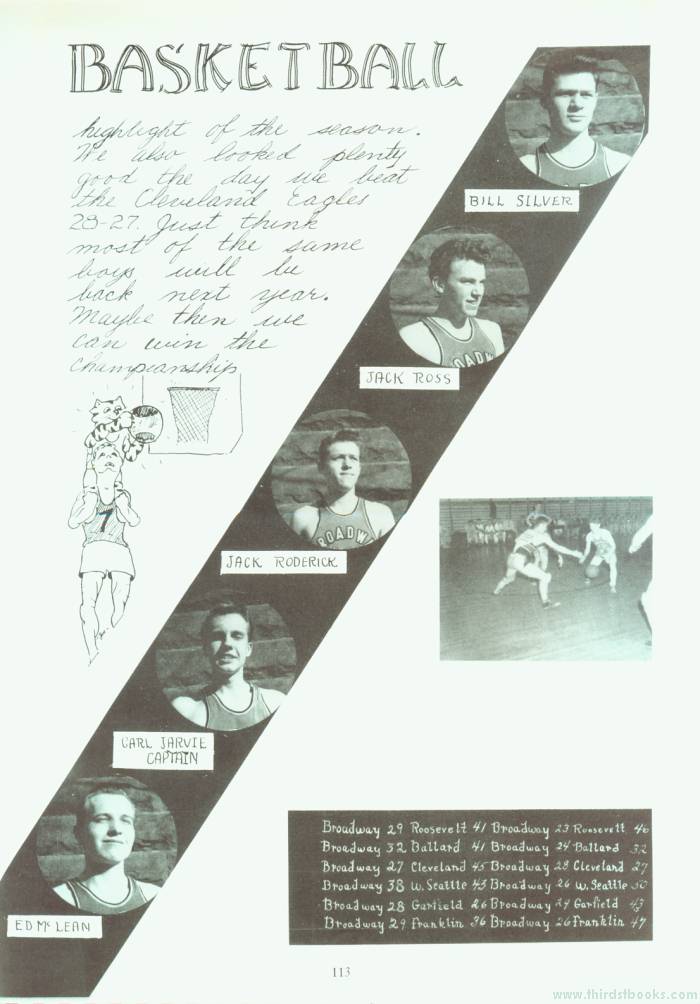 BASKETBALL
highlight of the season.
We also looked plenty
good the day we beat
the Cleveland Eagles
28-27. Just think
most of the same
boys will be
back next year.
Maybe then we
can win the
championship
BILL SILVER
JACK ROSS
ROADW
JACK RODERICK
ROADW
7
CARL JARVIE
CAPTAIN
ED Mc LEAN
Broadway 29 Roosevelt 41 Broadway 23 Roosevelt 40
Broadway 32 Ballard 41 Broadway 24 Ballard 32
Broadway 27 Cleveland 45 Broadway 28 Cleveland 27
Broadway 38 W. Seattle 43 Broadway 26 W. Seattle 30
Broadway 28 Garfield 26 Broadway 24 Garfield 43
Broadway 29 Franklin 36 Broadway 26 Franklin 47
113
www.thirdstbooks.com